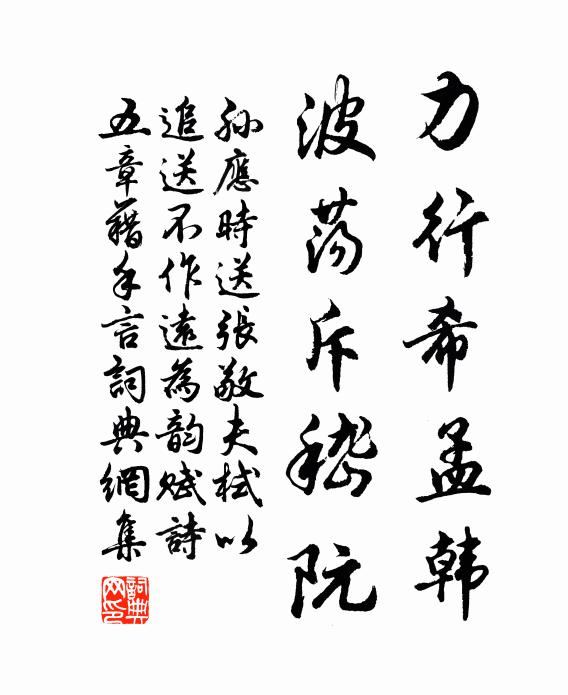 力行希孟韩
波荡斥嵇阮
孙應時送張敬夫栻以
追送不作遠為韵赋詩
五章藉手言詞典網集
詞典网印